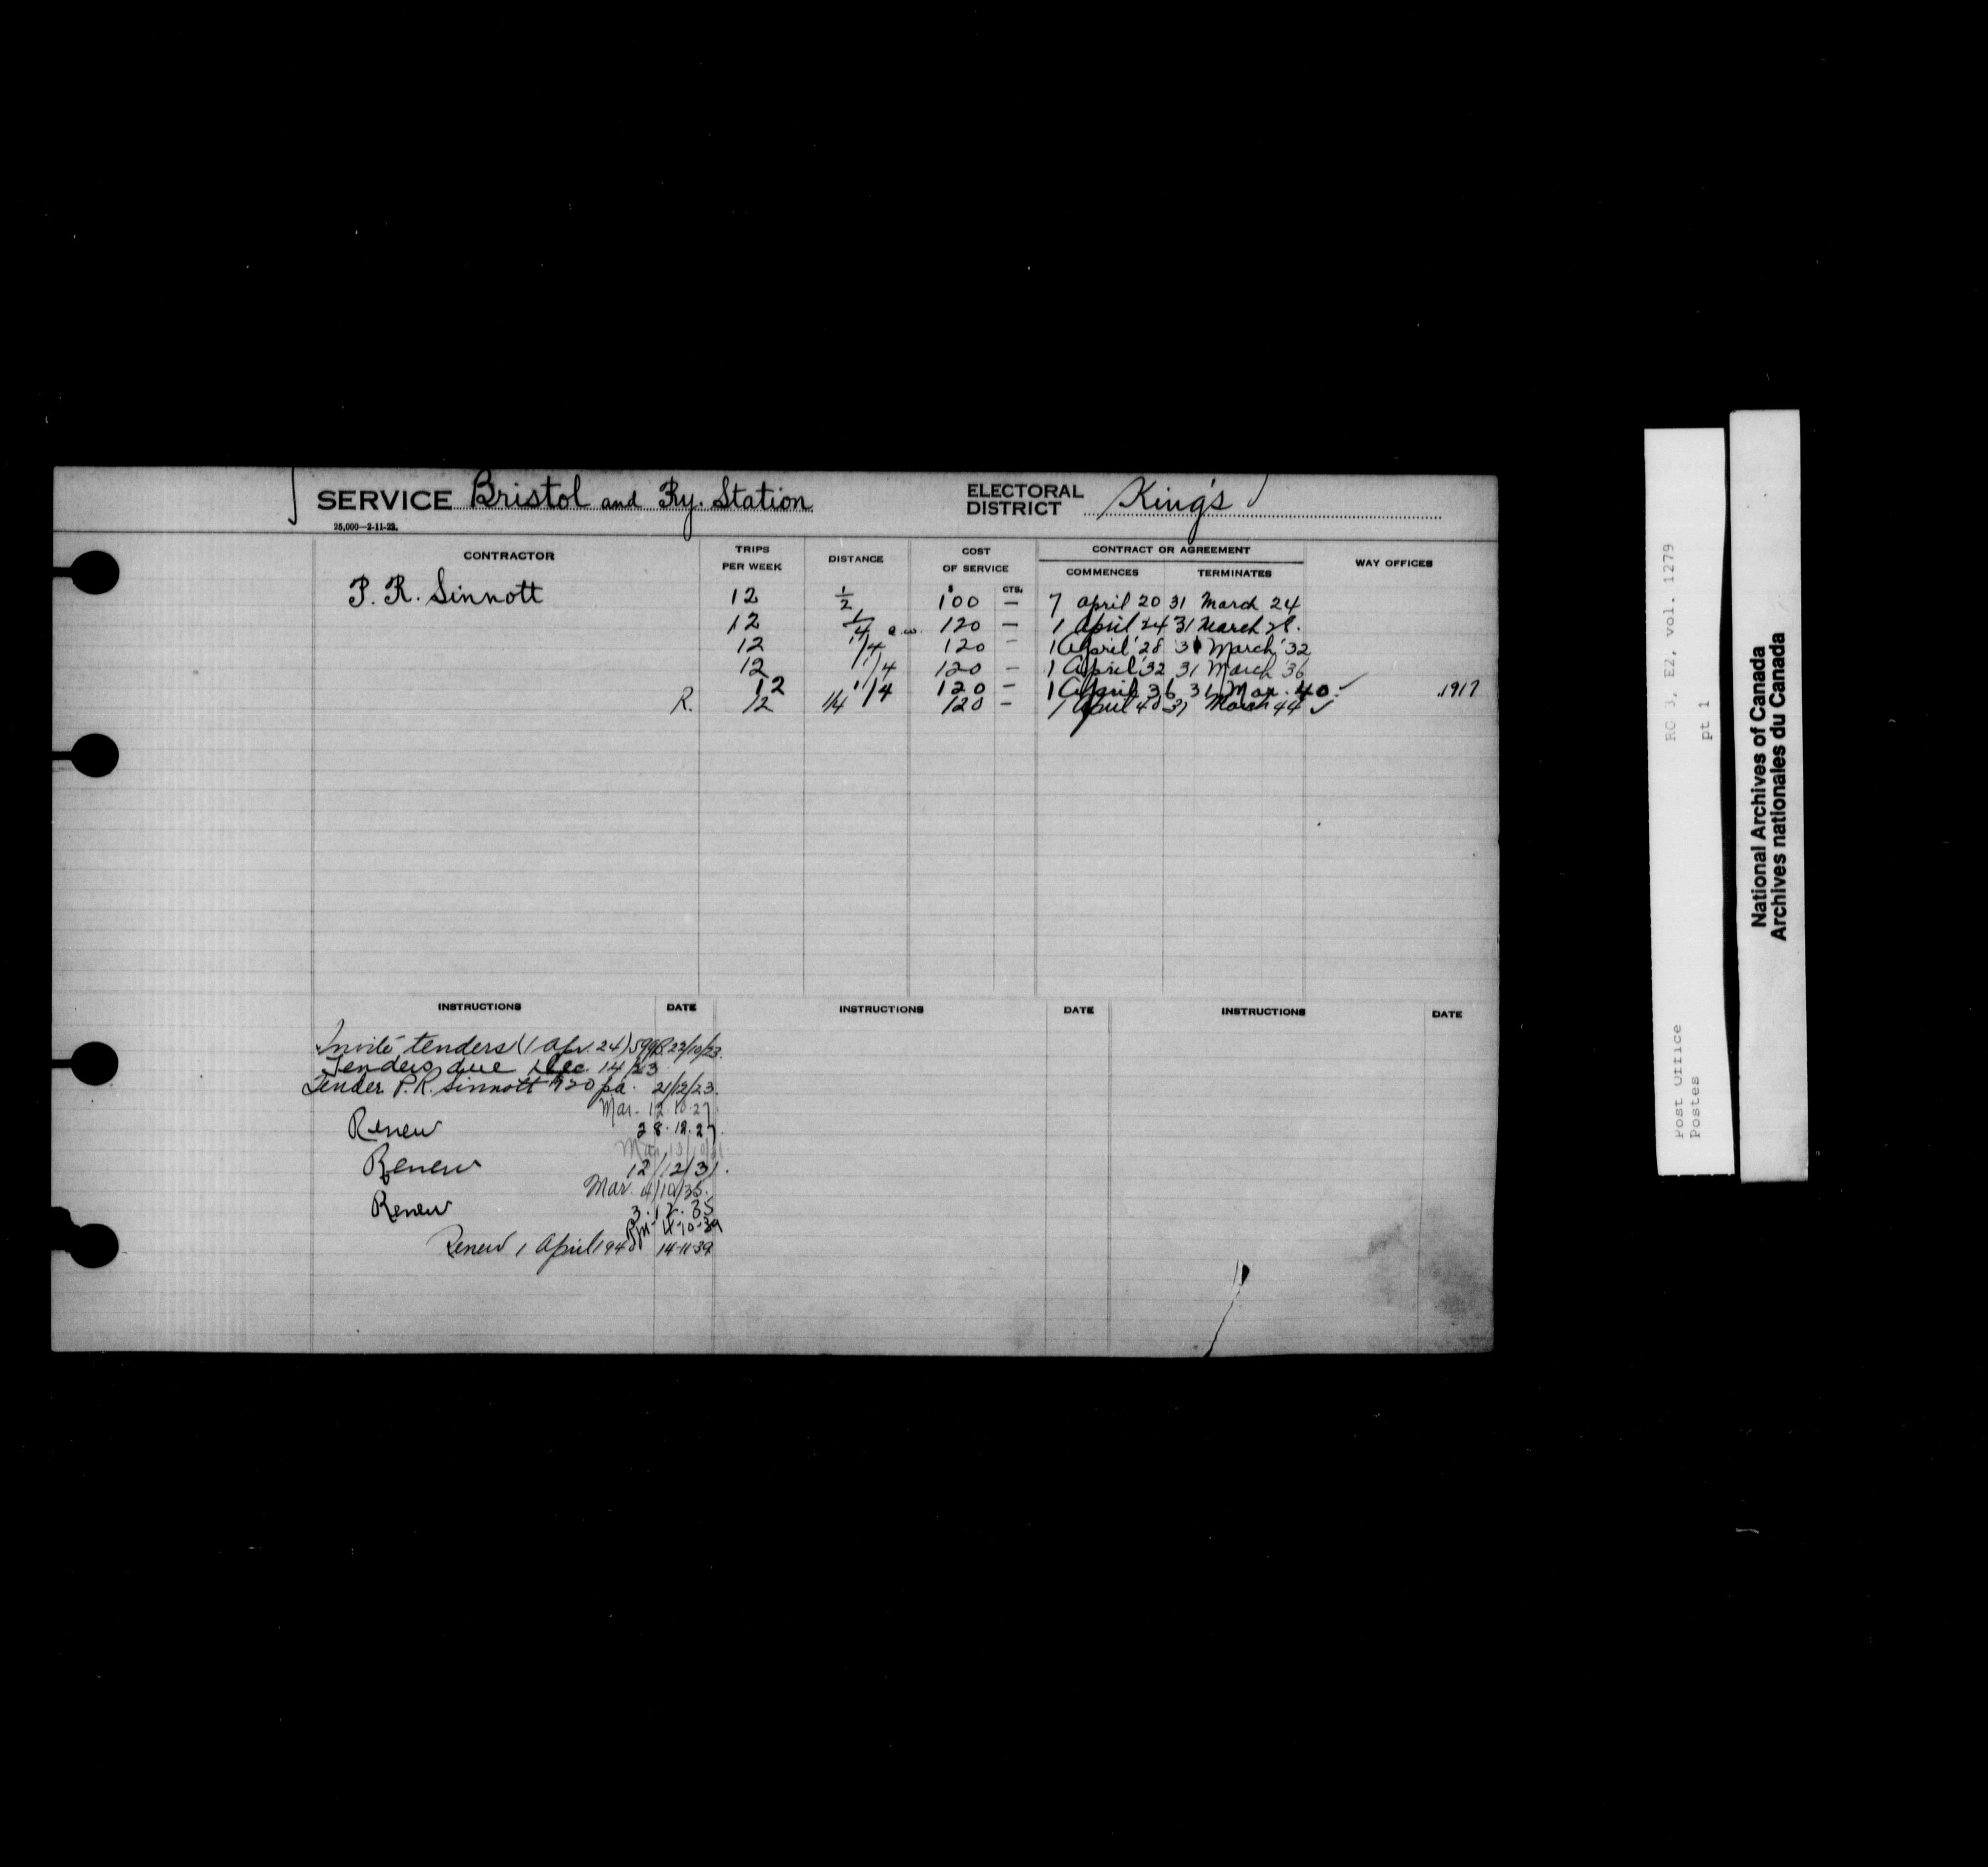 SERVICE Bristol and Ry. Station ELECTORAL DISTRICT King's
25,000—2-11-22.
CONTRACTOR TRIPS PER WEEK DISTANCE COST OF SERVICE CONTRACT OR AGREEMENT WAY OFFICES
COMMENCES TERMINATES
$ CTS.
P. R. Sinnott 12 1/2 100 — 7 April 20 31 March 24
12 1/4 120 — 1 April 24 31 March 28.
12 1/4 120 — 1 April '28 31 March '32
12 1/4 120 — 1 April '32 31 March '36
12 1/4 120 — 1 April 36 31 Mar. 40 ✓ 1917
R. 12 1/4 120 — 1 April 40 31 March 44 ✓
INSTRUCTIONS DATE INSTRUCTIONS DATE INSTRUCTIONS DATE
Invite tenders (1 Apr. 24) 22/10/23.
Tenders due Dec. 14/23
Tender P. R. Sinnott pa. 21/12/23.
Mar. 12.10.27
Renew 28.12.27.
Renew 12/12/31.
Mar. 4/10/35.
Renew 3.12.35
4-10-39
Renew 1 April 1940 14-11-39
RG 3, E2, vol. 1279
pt 1
Post Office
Postes
National Archives of Canada
Archives nationales du Canada